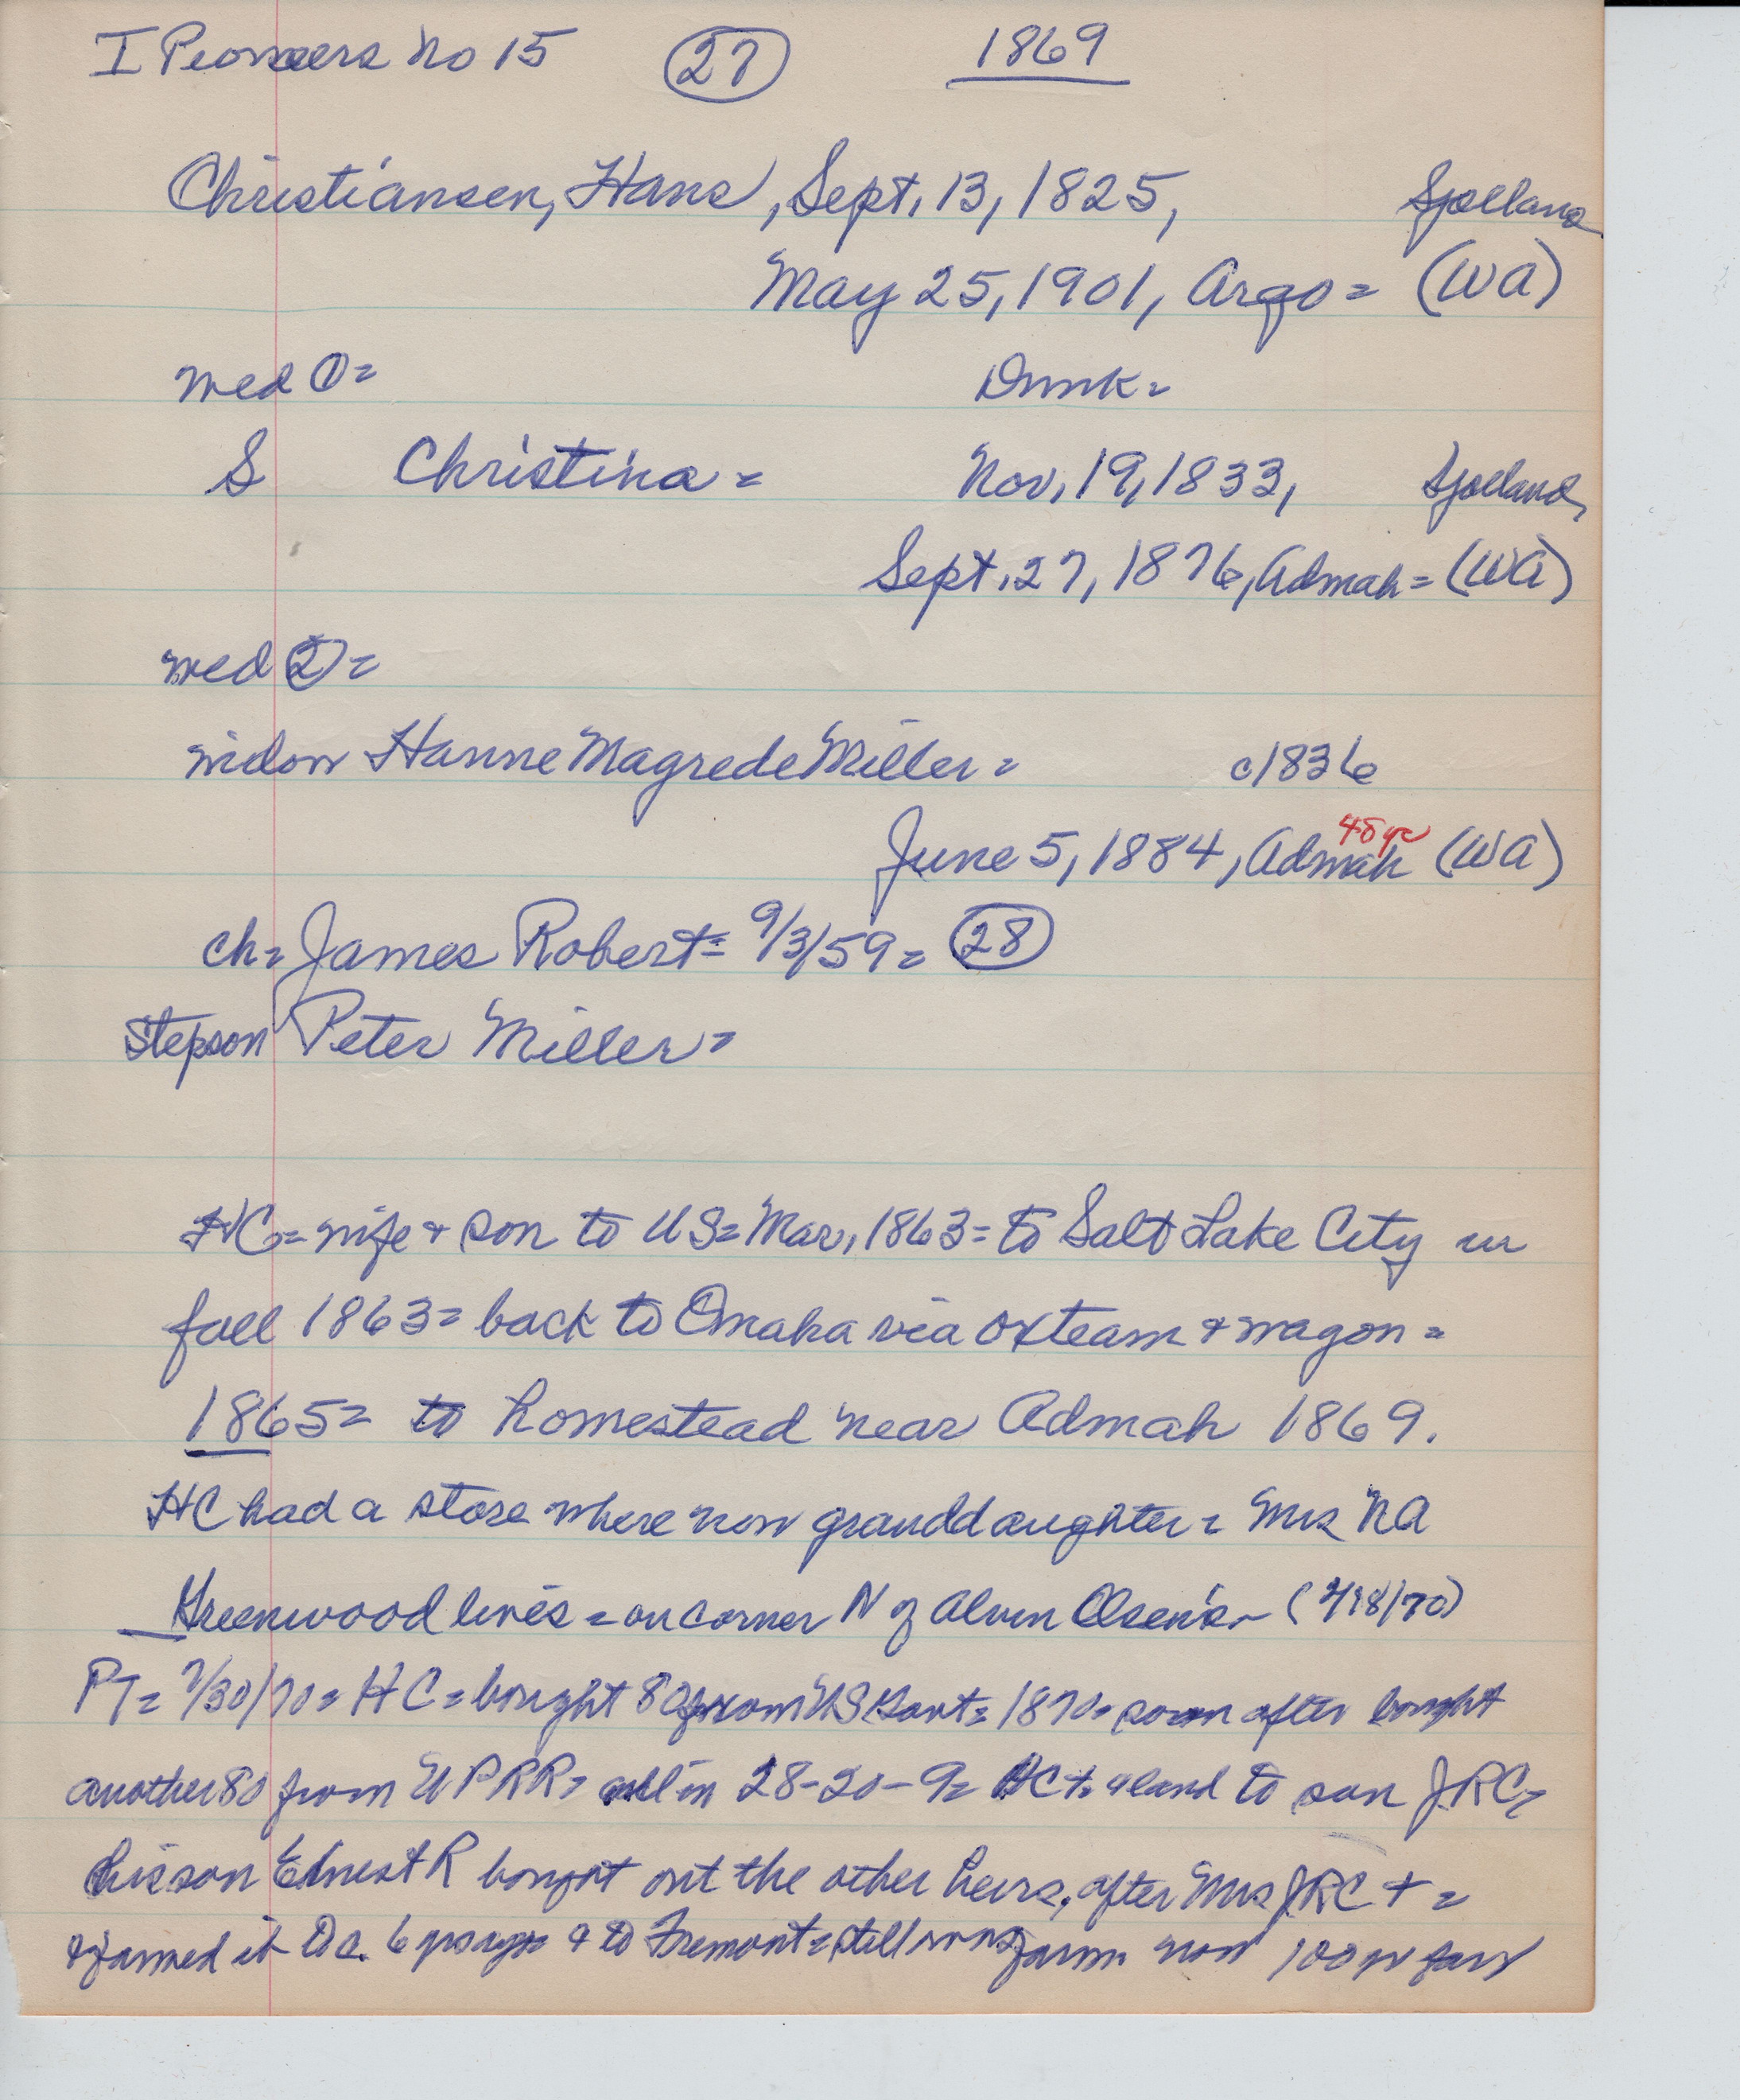 I Pioneers No 15 (27) 1869
Christiansen, Hans, Sept. 13, 1825, Sjolland
May 25, 1901, Argo = (WA)
med ① = Dnmk =
S Christina = Nov, 19, 1833, Sjolland,
Sept. 27, 1876, Admah = (WA)
med ② =
widow Hanne Magrede Miller = c1836
48 yr
June 5, 1884, Admah (WA)
ch = James Robert = 9/3/59 = (28)
Stepson Peter Miller =
HC = wife + son to US = Mar, 1863 = to Salt Lake City in
fall 1863 = back to Omaha via oxteam + wagon =
1865 = to homestead near Admah 1869.
HC had a store where now granddaughter = Mrs NA
Greenwood lives = on corner N of Alvin Olsen's - (7/18/70)
PT = 7/30/70 = HC = bought 80 from US Govt = 1870 = soon after bought
another 80 from UPRR = all in 28-20-9 = HC + = land to son JRC =
his son Ernest R bought out the other heirs, after Mrs JRC + =
+ farmed it to c. 6 yrs ago + to Fremont = still owns farm now 100 yr farm